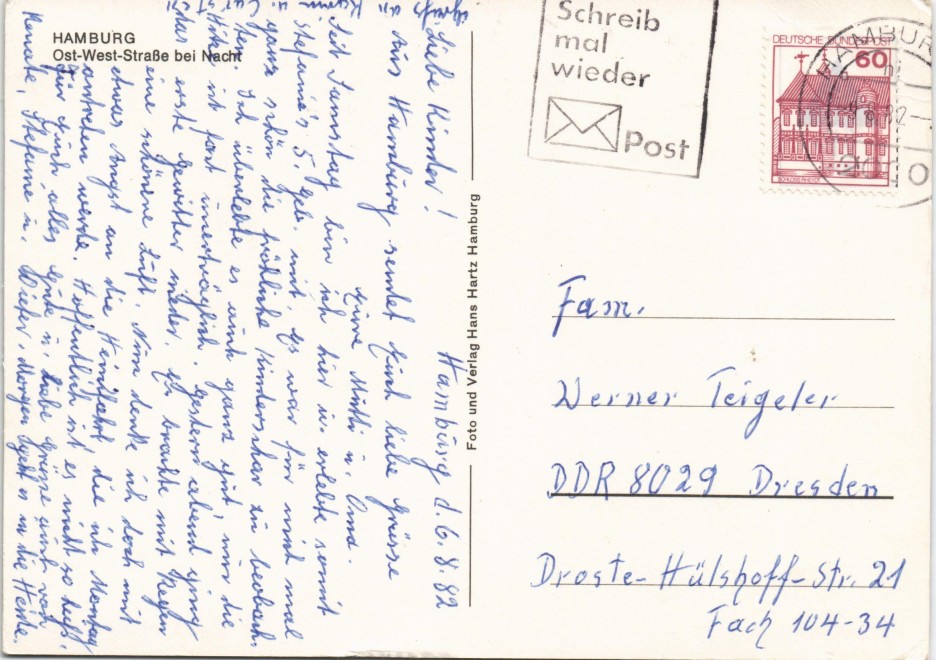 HAMBURG
Ost-West-Straße bei Nacht
Hamburg d. 6.8.82
Liebe Kinder!
Aus Hamburg sendet Euch liebe Grüsse
Eure Mutti u. Oma.
Seit Samstag bin ich hier u. erlebte somit
Stefanie's 5. Geb. mit. Es war für mich mal
ganz schön die fröhliche Kinderschar zu beobach
ten. Ich überlebte es auch ganz gut nur die
Hitze ist fast unerträglich. Gestern abend ging
das erste Gewitter nieder. Es brachte mit Regen
eine schönere Luft. Nun denke ich doch mit
etwas Angst an die Heimfahrt die ich Montag
antreten werde. Hoffentlich ist es nicht so heiß.
Für Euch alles Gute u. liebe Grüsse auch von
Renate, Stefanie u. Dieter. Morgen geht es in die Heide.
Foto und Verlag Hans Hartz Hamburg
Schreib
mal
wieder
Post
DEUTSCHE BUNDESPOST
60
HAMBURG
Fam.
Werner Teigeler
DDR 8029 Dresden
Droste-Hülshoff-Str. 21
Fach 104-34